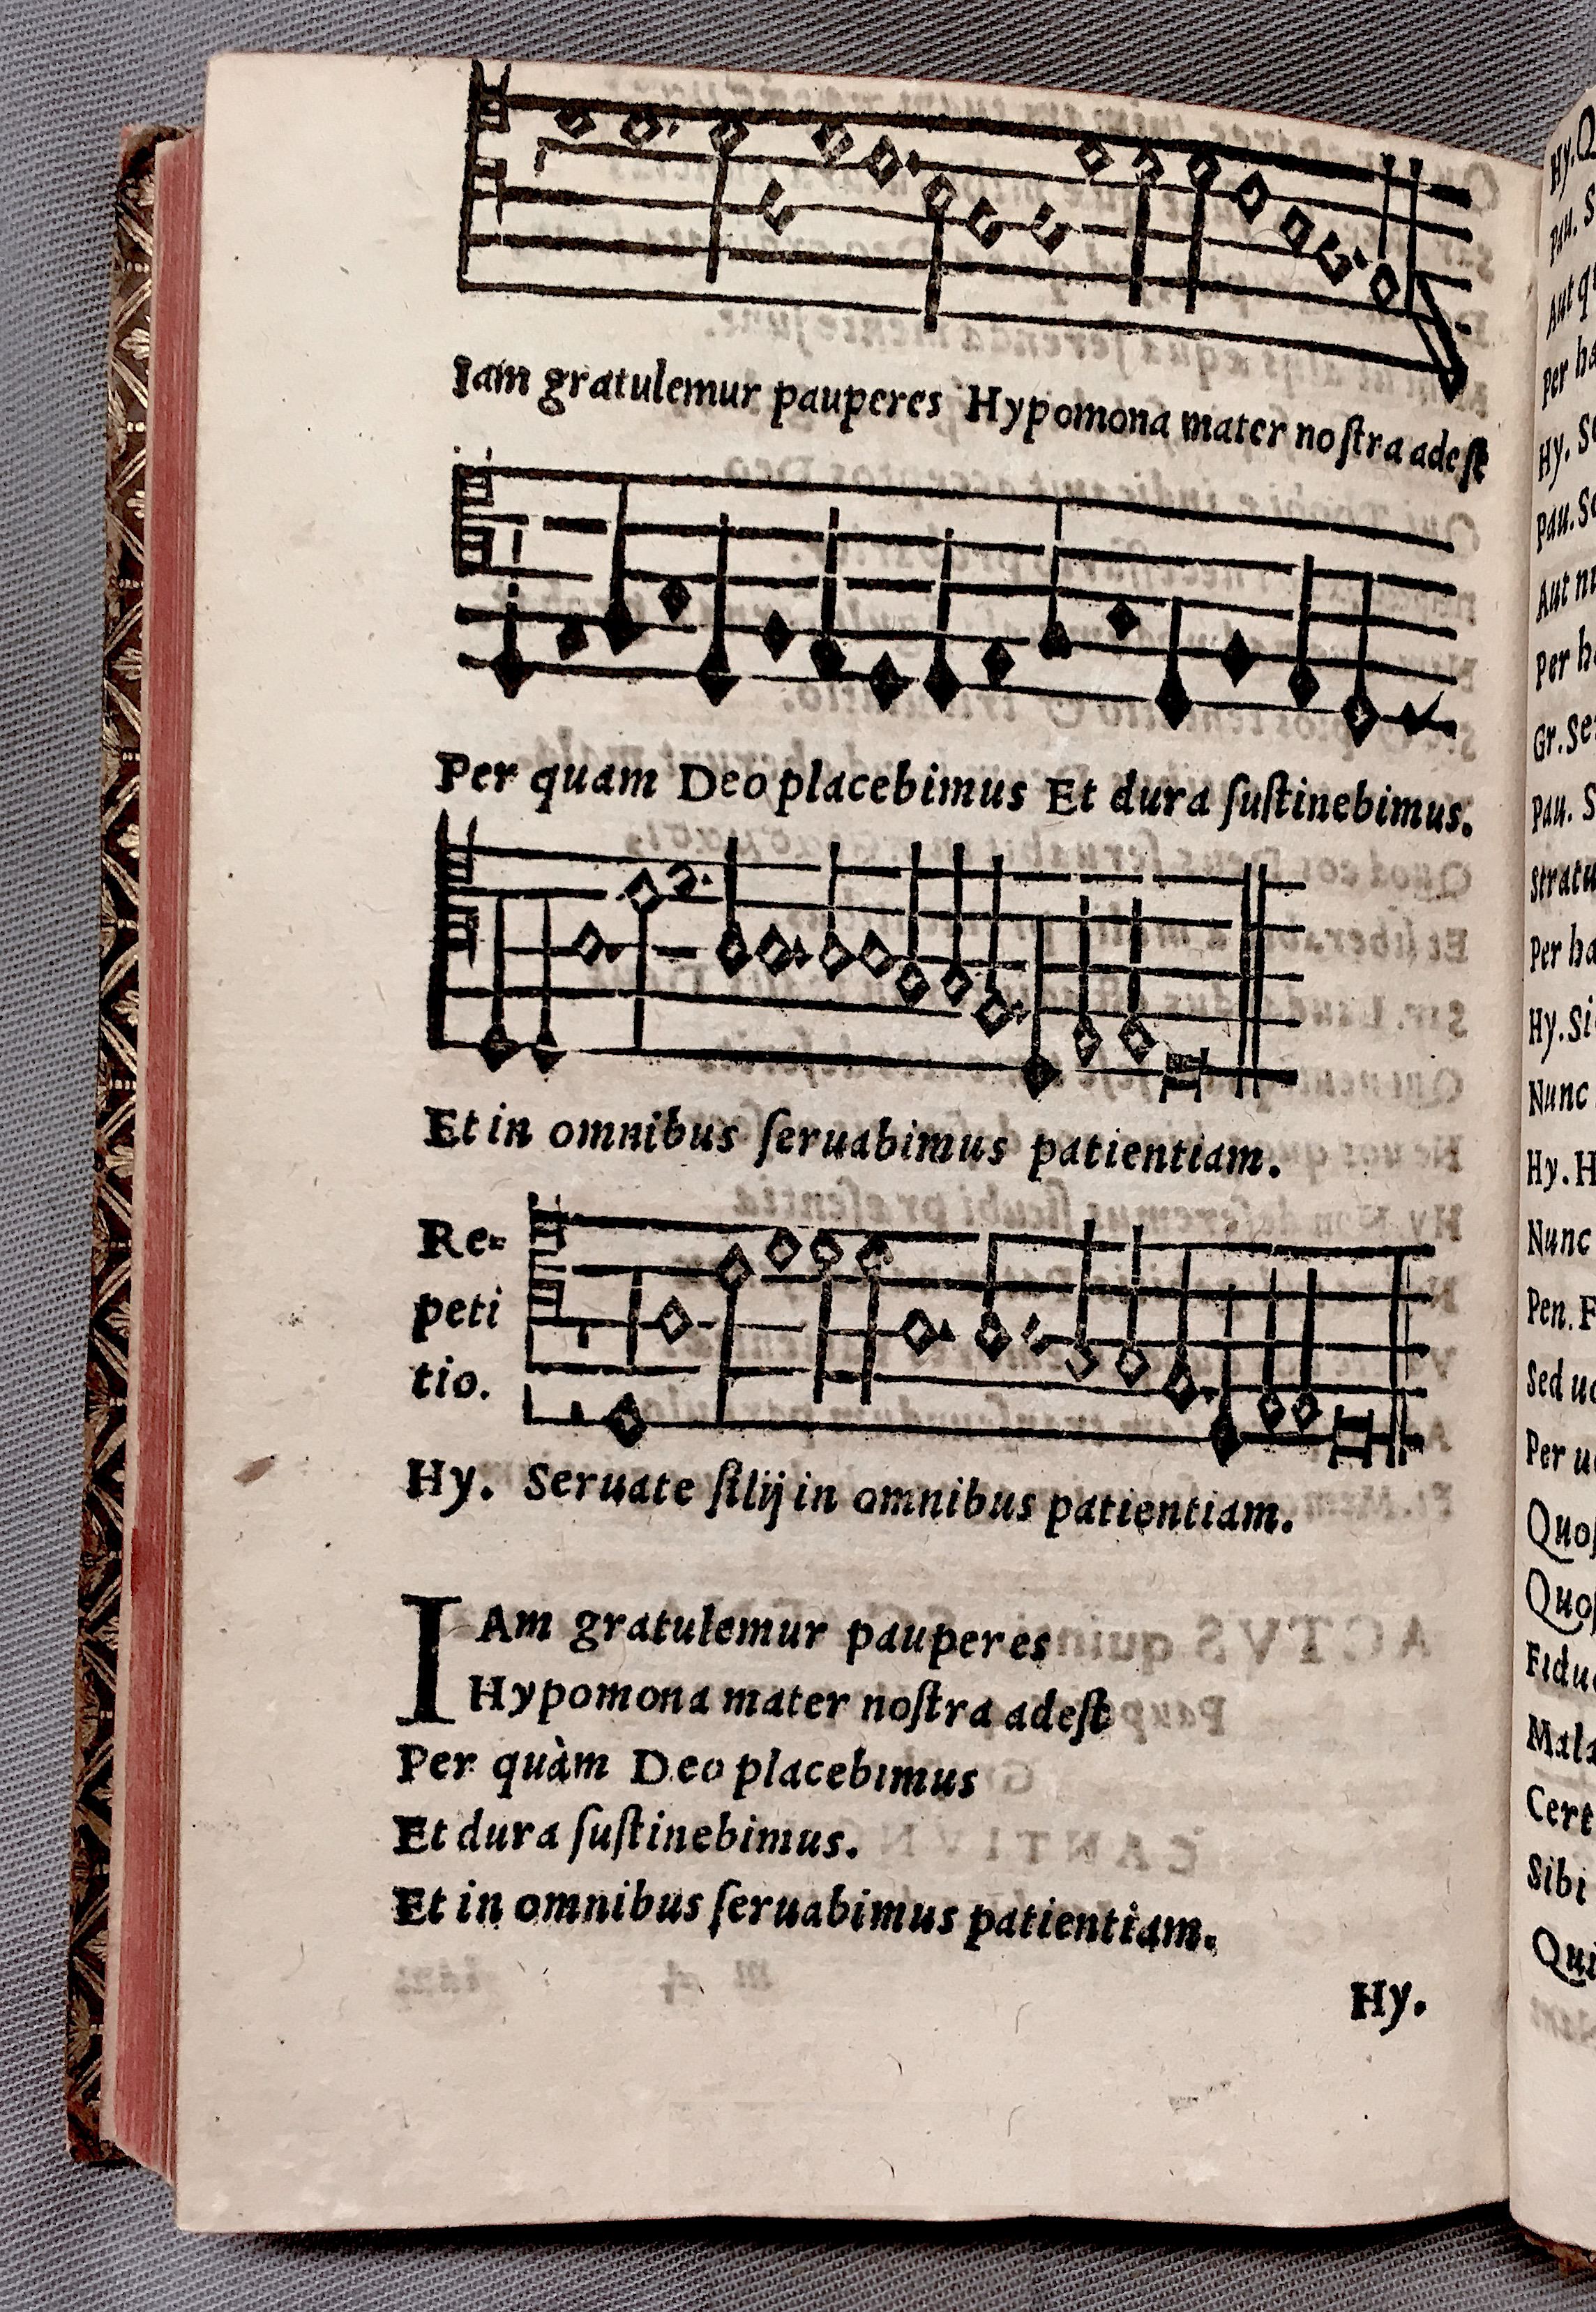 Iam gratulemur pauperes Hypomona mater noſtra adeſt
Per quam Deo placebimus Et dura ſuſtinebimus.
Et in omnibus ſeruabimus patientiam.
Re-
peti
tio.
Hy. Seruate filij in omnibus patientiam.
IAm gratulemur pauperes
Hypomona mater noſtra adeſt
Per quàm Deo placebimus
Et dura ſuſtinebimus.
Et in omnibus ſeruabimus patientiam.
Hy.
Hy.
Aut
Per
Hy.
Pau.
Aut
Per
Gr.
Pau.
Per
Hy.
Nunc
Hy.
Nunc
Pen.
Sed
Per
Sibi